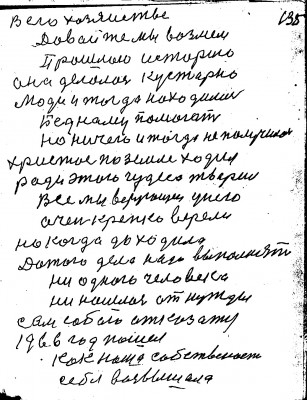 В его хозяйстве 135
Давайте мы возмем
Прошлою историю
она делалас кустарно
Люди и тогда находилис
Бедному помогат
но ничего и тогда не получилос
христос по земле ходил
ради этого чудеса творил
Все мы верующии у него
очен крепко верели
но когда доходила
До того дела надо выполнят
ни одного человека
ни нашлос от нужды
сам собою отказатс
1966 год пошел
Как наша собственост
себя возвышала